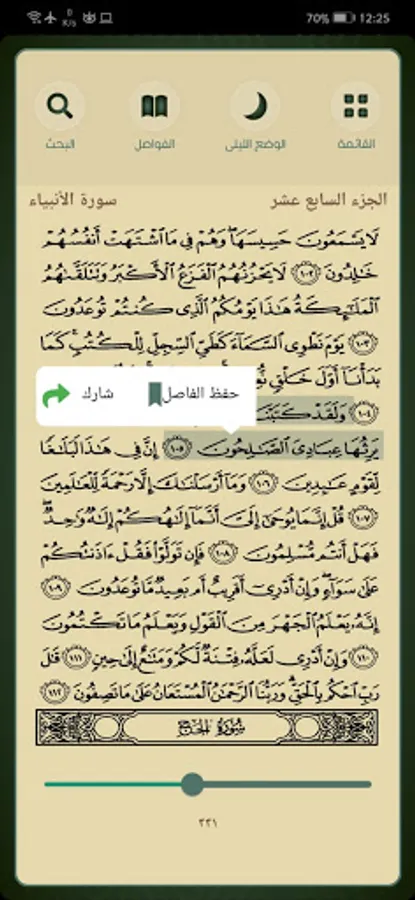 70% 12:25
0
K/s
القائمة الوضع الليلي الفواصل البحث
الجزء السابع عشر سورة الأنبياء
لَا يَسْمَعُونَ حَسِيسَهَا ۖ وَهُمْ فِي مَا ٱشْتَهَتْ أَنفُسُهُمْ
خَٰلِدُونَ ١٠٢ لَا يَحْزُنُهُمُ ٱلْفَزَعُ ٱلْأَكْبَرُ وَتَتَلَقَّىٰهُمُ
ٱلْمَلَٰٓئِكَةُ هَٰذَا يَوْمُكُمُ ٱلَّذِي كُنتُمْ تُوعَدُونَ
١٠٣ يَوْمَ نَطْوِي ٱلسَّمَآءَ كَطَيِّ ٱلسِّجِلِّ لِلْكُتُبِ ۚ كَمَا
بَدَأْنَآ أَوَّلَ خَلْقٍ
حفظ الفاصل شارك
١٠٤ وَلَقَدْ كَتَبْنَا
يَرِثُهَا عِبَادِيَ ٱلصَّٰلِحُونَ ١٠٥ إِنَّ فِي هَٰذَا لَبَلَٰغًا
لِّقَوْمٍ عَٰبِدِينَ ١٠٦ وَمَآ أَرْسَلْنَٰكَ إِلَّا رَحْمَةً لِّلْعَٰلَمِينَ
١٠٧ قُلْ إِنَّمَا يُوحَىٰٓ إِلَيَّ أَنَّمَآ إِلَٰهُكُمْ إِلَٰهٌ وَٰحِدٌ ۖ
فَهَلْ أَنتُم مُّسْلِمُونَ ١٠٨ فَإِن تَوَلَّوْا۟ فَقُلْ ءَاذَنتُكُمْ
عَلَىٰ سَوَآءٍ ۖ وَإِنْ أَدْرِيٓ أَقَرِيبٌ أَم بَعِيدٌ مَّا تُوعَدُونَ ١٠٩
إِنَّهُۥ يَعْلَمُ ٱلْجَهْرَ مِنَ ٱلْقَوْلِ وَيَعْلَمُ مَا تَكْتُمُونَ
١١٠ وَإِنْ أَدْرِي لَعَلَّهُۥ فِتْنَةٌ لَّكُمْ وَمَتَٰعٌ إِلَىٰ حِينٍ ١١١ قَٰلَ
رَبِّ ٱحْكُم بِٱلْحَقِّ ۗ وَرَبُّنَا ٱلرَّحْمَٰنُ ٱلْمُسْتَعَانُ عَلَىٰ مَا تَصِفُونَ ١١٢
سُورَةُ الحَجِّ
٣٣١